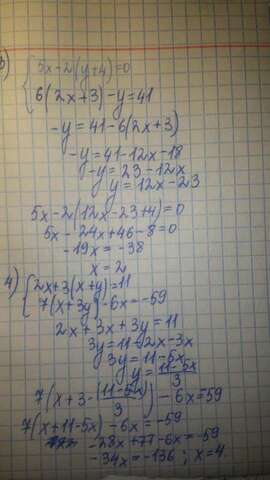 3) { 5x-2(y+4)=0
6(2x+3)-y=41
-y=41-6(2x+3)
-y=41-12x-18
-y=23-12x
y=12x-23
5x-2(12x-23+4)=0
5x-24x+46-8=0
-19x=-38
x=2
4) { 2x+3(x+y)=11
7(x+3y)-6x=-59
2x+3x+3y=11
3y=11-2x-3x
3y=11-5x
y=11-5x/3
7(x+3·(11-5x)/3)-6x=-59
7(x+11-5x)-6x=-59
-28x+77-6x=-59
-34x=-136; x=4